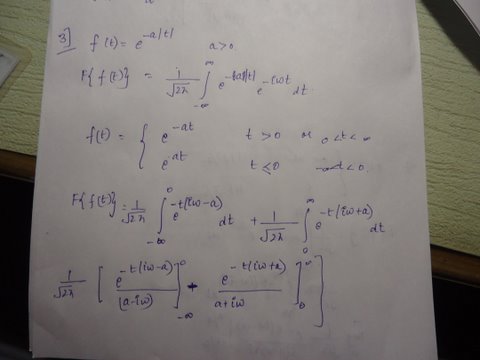 3] f(t) = e^{-a|t|} a>0.
F{f(t)} = 1/√2π ∫_{-∞}^{∞} e^{-a|t|} e^{-iωt} dt.
f(t) = { e^{-at} t > 0 or 0<t<∞
e^{at} t ≤ 0 -∞<t<0.
F{f(t)} = 1/√2π ∫_{-∞}^{0} e^{-t(iω-a)} dt + 1/√2π ∫_{0}^{∞} e^{-t(iω+a)} dt
1/√2π [ e^{-t(iω-a)}/(a-iω) ]_{-∞}^{0} - e^{-t(iω+a)}/(a+iω) ]_{0}^{∞} ]